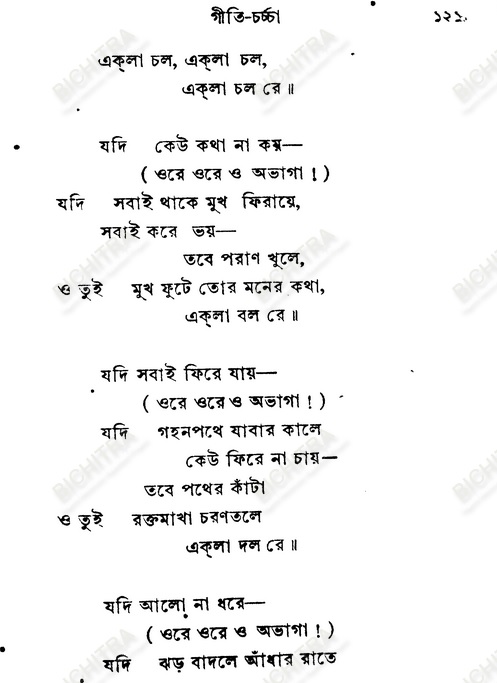 গীতি-চর্চ্চা ১২১
এক্‌লা চল, এক্‌লা চল,
এক্‌লা চল রে॥
যদি কেউ কথা না কয়—
( ওরে ওরে ও অভাগা ! )
যদি সবাই থাকে মুখ ফিরায়ে,
সবাই করে ভয়—
তবে পরাণ খুলে,
ও তুই মুখ ফুটে তোর মনের কথা,
এক্‌লা বল রে॥
যদি সবাই ফিরে যায়—
( ওরে ওরে ও অভাগা ! )
যদি গহনপথে যাবার কালে
কেউ ফিরে না চায়—
তবে পথের কাঁটা
ও তুই রক্তমাখা চরণতলে
এক্‌লা দল রে॥
যদি আলো না ধরে—
( ওরে ওরে ও অভাগা ! )
যদি ঝড় বাদলে আঁধার রাতে
BICHITRA